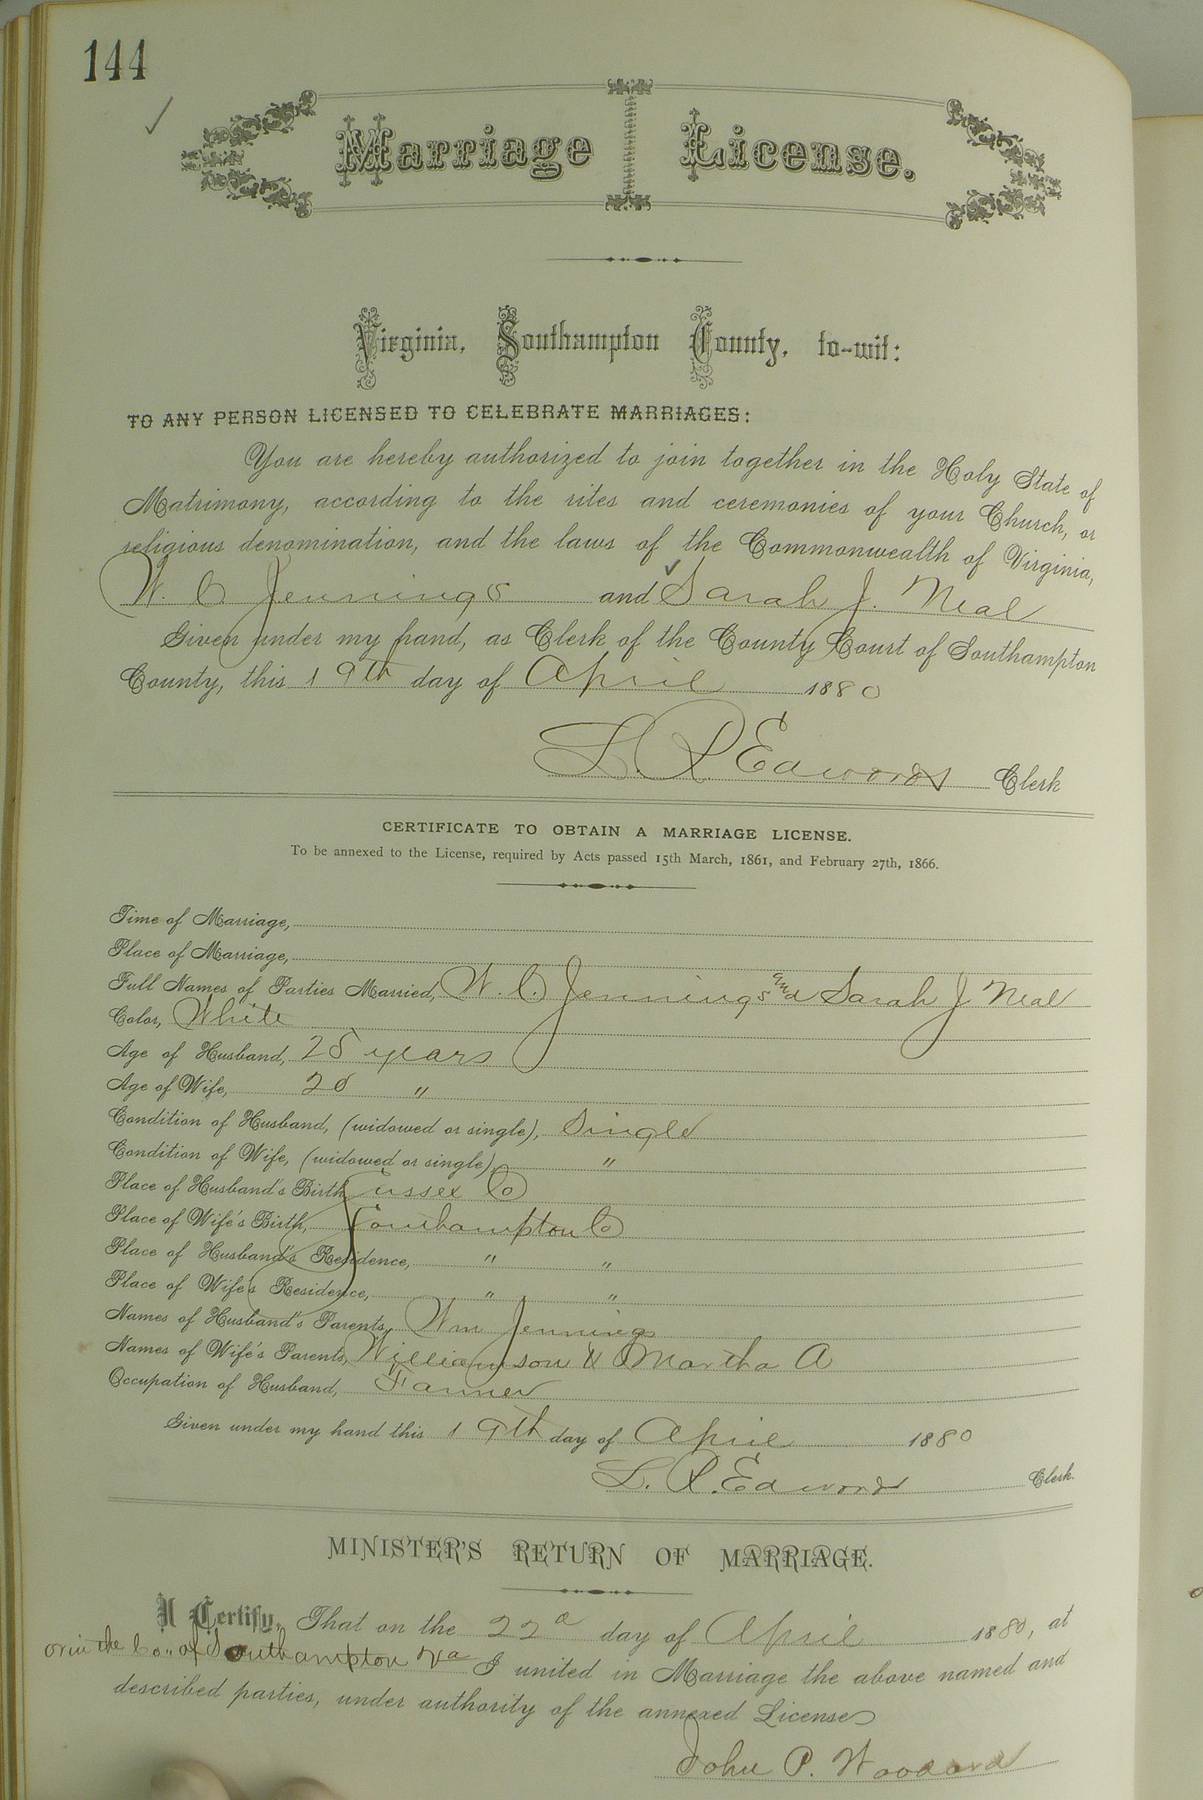 144
Marriage License.
Virginia, Southampton County, to-wit:
TO ANY PERSON LICENSED TO CELEBRATE MARRIAGES:
You are hereby authorized to join together in the Holy State of
Matrimony, according to the rites and ceremonies of your Church, or
religious denomination, and the laws of the Commonwealth of Virginia,
W. C. Jennings and Sarah J. Neal
Given under my hand, as Clerk of the County Court of Southampton
County, this 19th day of April 1880
L. R. Edwards Clerk
CERTIFICATE TO OBTAIN A MARRIAGE LICENSE.
To be annexed to the License, required by Acts passed 15th March, 1861, and February 27th, 1866.
Time of Marriage,
Place of Marriage,
Full Names of Parties Married, W. C. Jennings and Sarah J Neal
Color, White
Age of Husband, 28 years
Age of Wife, 20 "
Condition of Husband, (widowed or single), Single
Condition of Wife, (widowed or single), "
Place of Husband's Birth, Sussex Co
Place of Wife's Birth, Southampton Co
Place of Husband's Residence, " "
Place of Wife's Residence, " "
Names of Husband's Parents, Wm Jennings
Names of Wife's Parents, Williamson & Martha A
Occupation of Husband, Farmer
Given under my hand this 19th day of April 1880
L. R. Edwards Clerk.
MINISTER'S RETURN OF MARRIAGE.
I Certify, That on the 22d day of April 1880, at
or in the Co.. of Southampton Va I united in Marriage the above named and
described parties, under authority of the annexed License
John P. Woodard